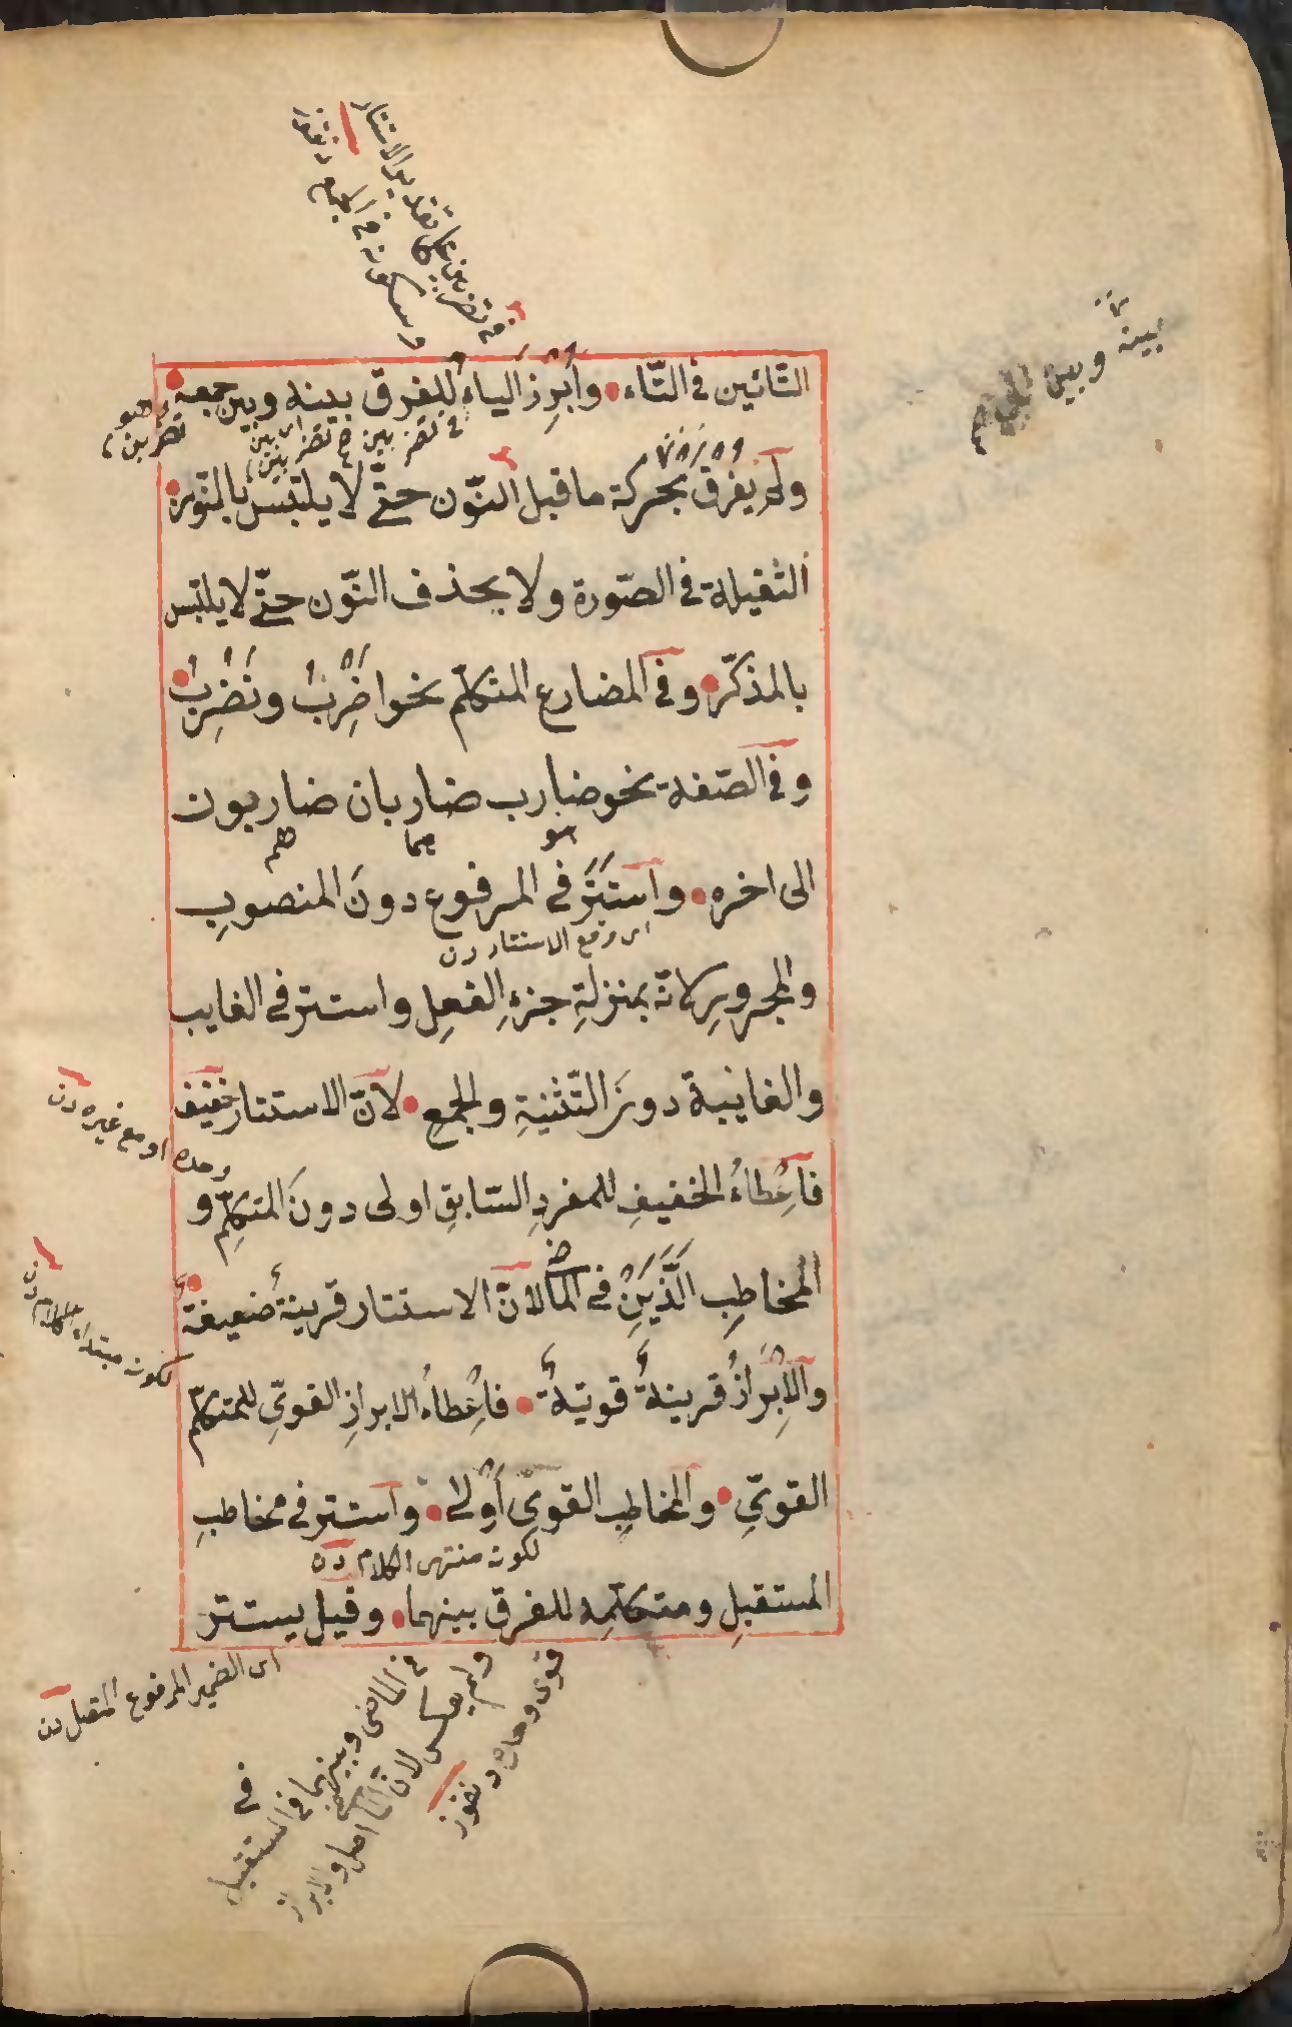 التّائين في التّاء وأُبرِزَ الياءُ للفرق بينه وبين جمعه
ولم يفرق بحركة ما قبل النّون حتّى لا يلتبس بالنّون
الثقيلة في الصّورة ولا يحذف النّون حتّى لا يلتبس
بالمذكّر وفي المضارع المتكلّم نحو اضْرِبُ ونَضْرِبُ
وفي الصّفة نحو ضارب ضاربان ضاربون
هو هما هم
الى اخره واستَتَرَ في المرفوع دونَ المنصوبِ
والمجرورِ لانّه بمنزلةِ جزءِ الفعلِ واستتر في الغايب
والغايبة دونَ التّثنيةِ والجمع لانّ الاستتار خفيف
فاِعْطاءُ الخفيفِ للمفردِ السّابقِ اولى دونَ المتكلِّم و
المخاطبِ الَّذَيْنِ في الماضى لانّ الاستتار قرينة ضعيفة
والاِبْرازُ قرينةٌ قويّةٌ فاِعْطاءُ الابرازِ القويّ للمتكلّم
القويّ والمخاطبِ القويّ أَوْلى واستتر في مخاطبِ
لكونه منتهى الكلام
المستقبلِ ومتكلّمِه للفرق بينهما وقيل يستتر
اى الضمير المرفوع المتصل
في
وحده او مع غيره
بينه وبين الجمع
في الماضى وبينهما في المستقبل
ولم يعكس لانّ الماضى اصل والابراز
قوى